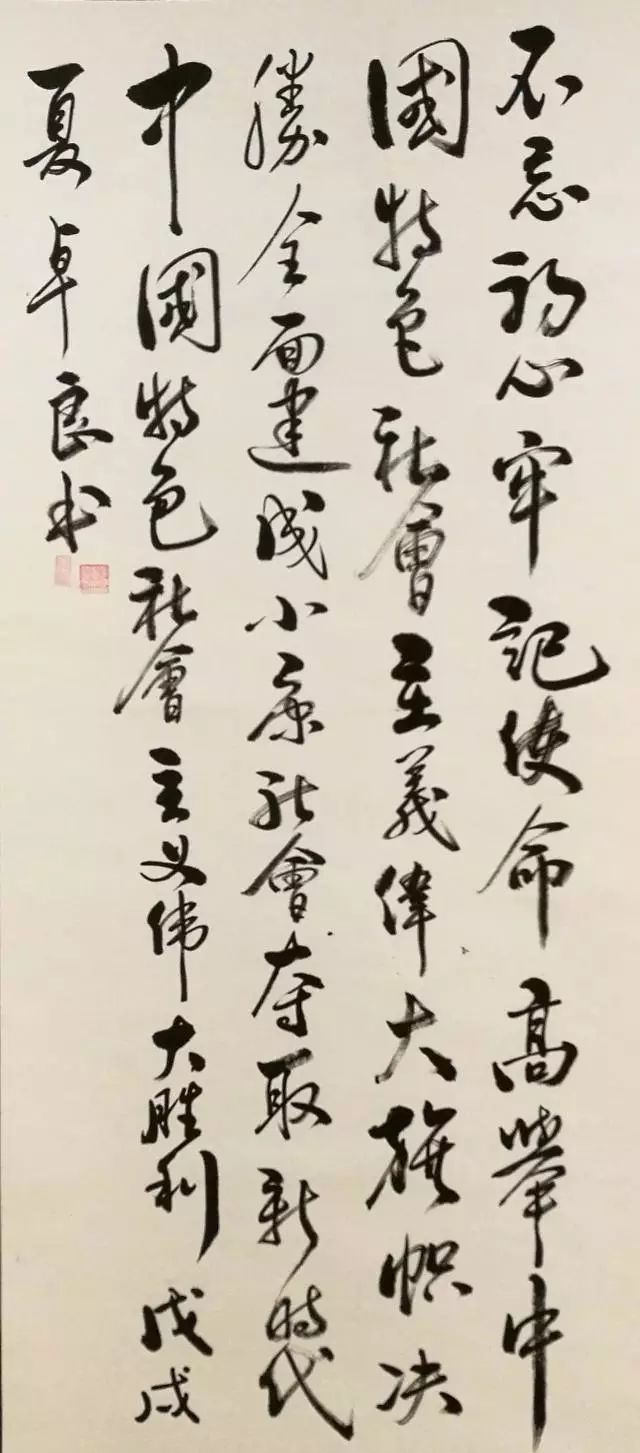 不忘初心牢記使命高舉中
國特色社會主義偉大旗帜决
勝全面建成小康社會夺取新時代
中國特色社會主义伟大胜利戊戌
夏卓良书